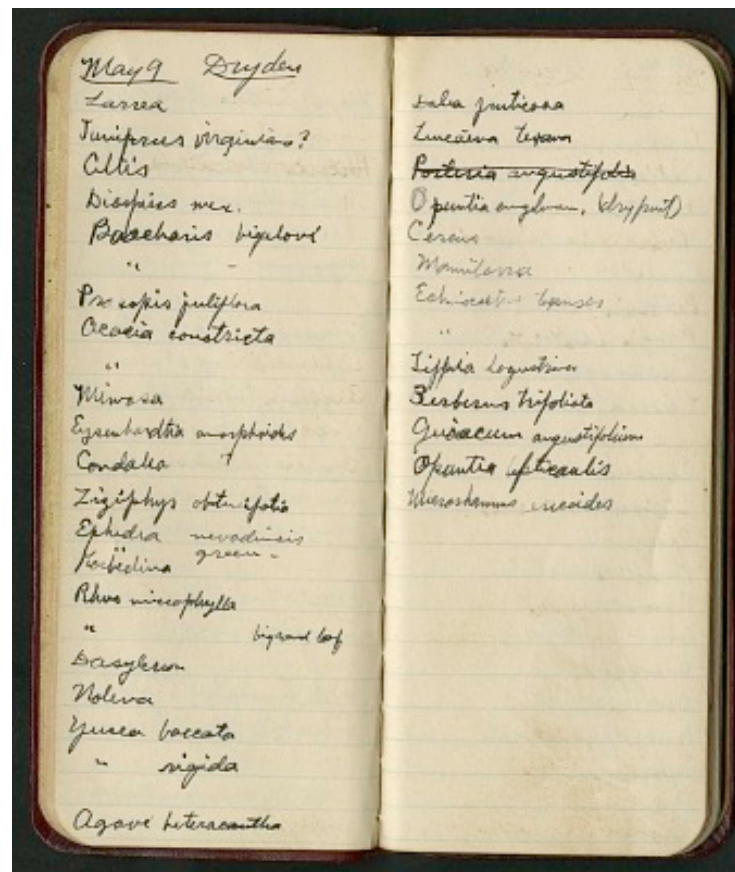 May 9 Dryden
Larrea
Juniperus virginiana?
Celtis
Diospiros mex.
Baccharis bigelovi
" -
Prosopis juliflora
Acacia constricta
"
Mimosa
Eysenhardtia amorphoides
Condalia ?
Zigiphys obtusifolia
Ephedra nevadinsis
green -
Koeberlinia
Rhus microphylla
" big round leaf
Dasylirion
Nolina
Yucca baccata
" rigida
Agave heteracantha
Dalea fruticosa
Leucaena texana
Porlieria angustifolia
Opuntia engleman. (dry fruit)
Cereus
Mamilaria
Echinocactus texensis
"
Lippia ligustrina
Berberus trifoliata
Guiacum angustifolium
Opuntia lepticaulis
Microrhamnus ericoides